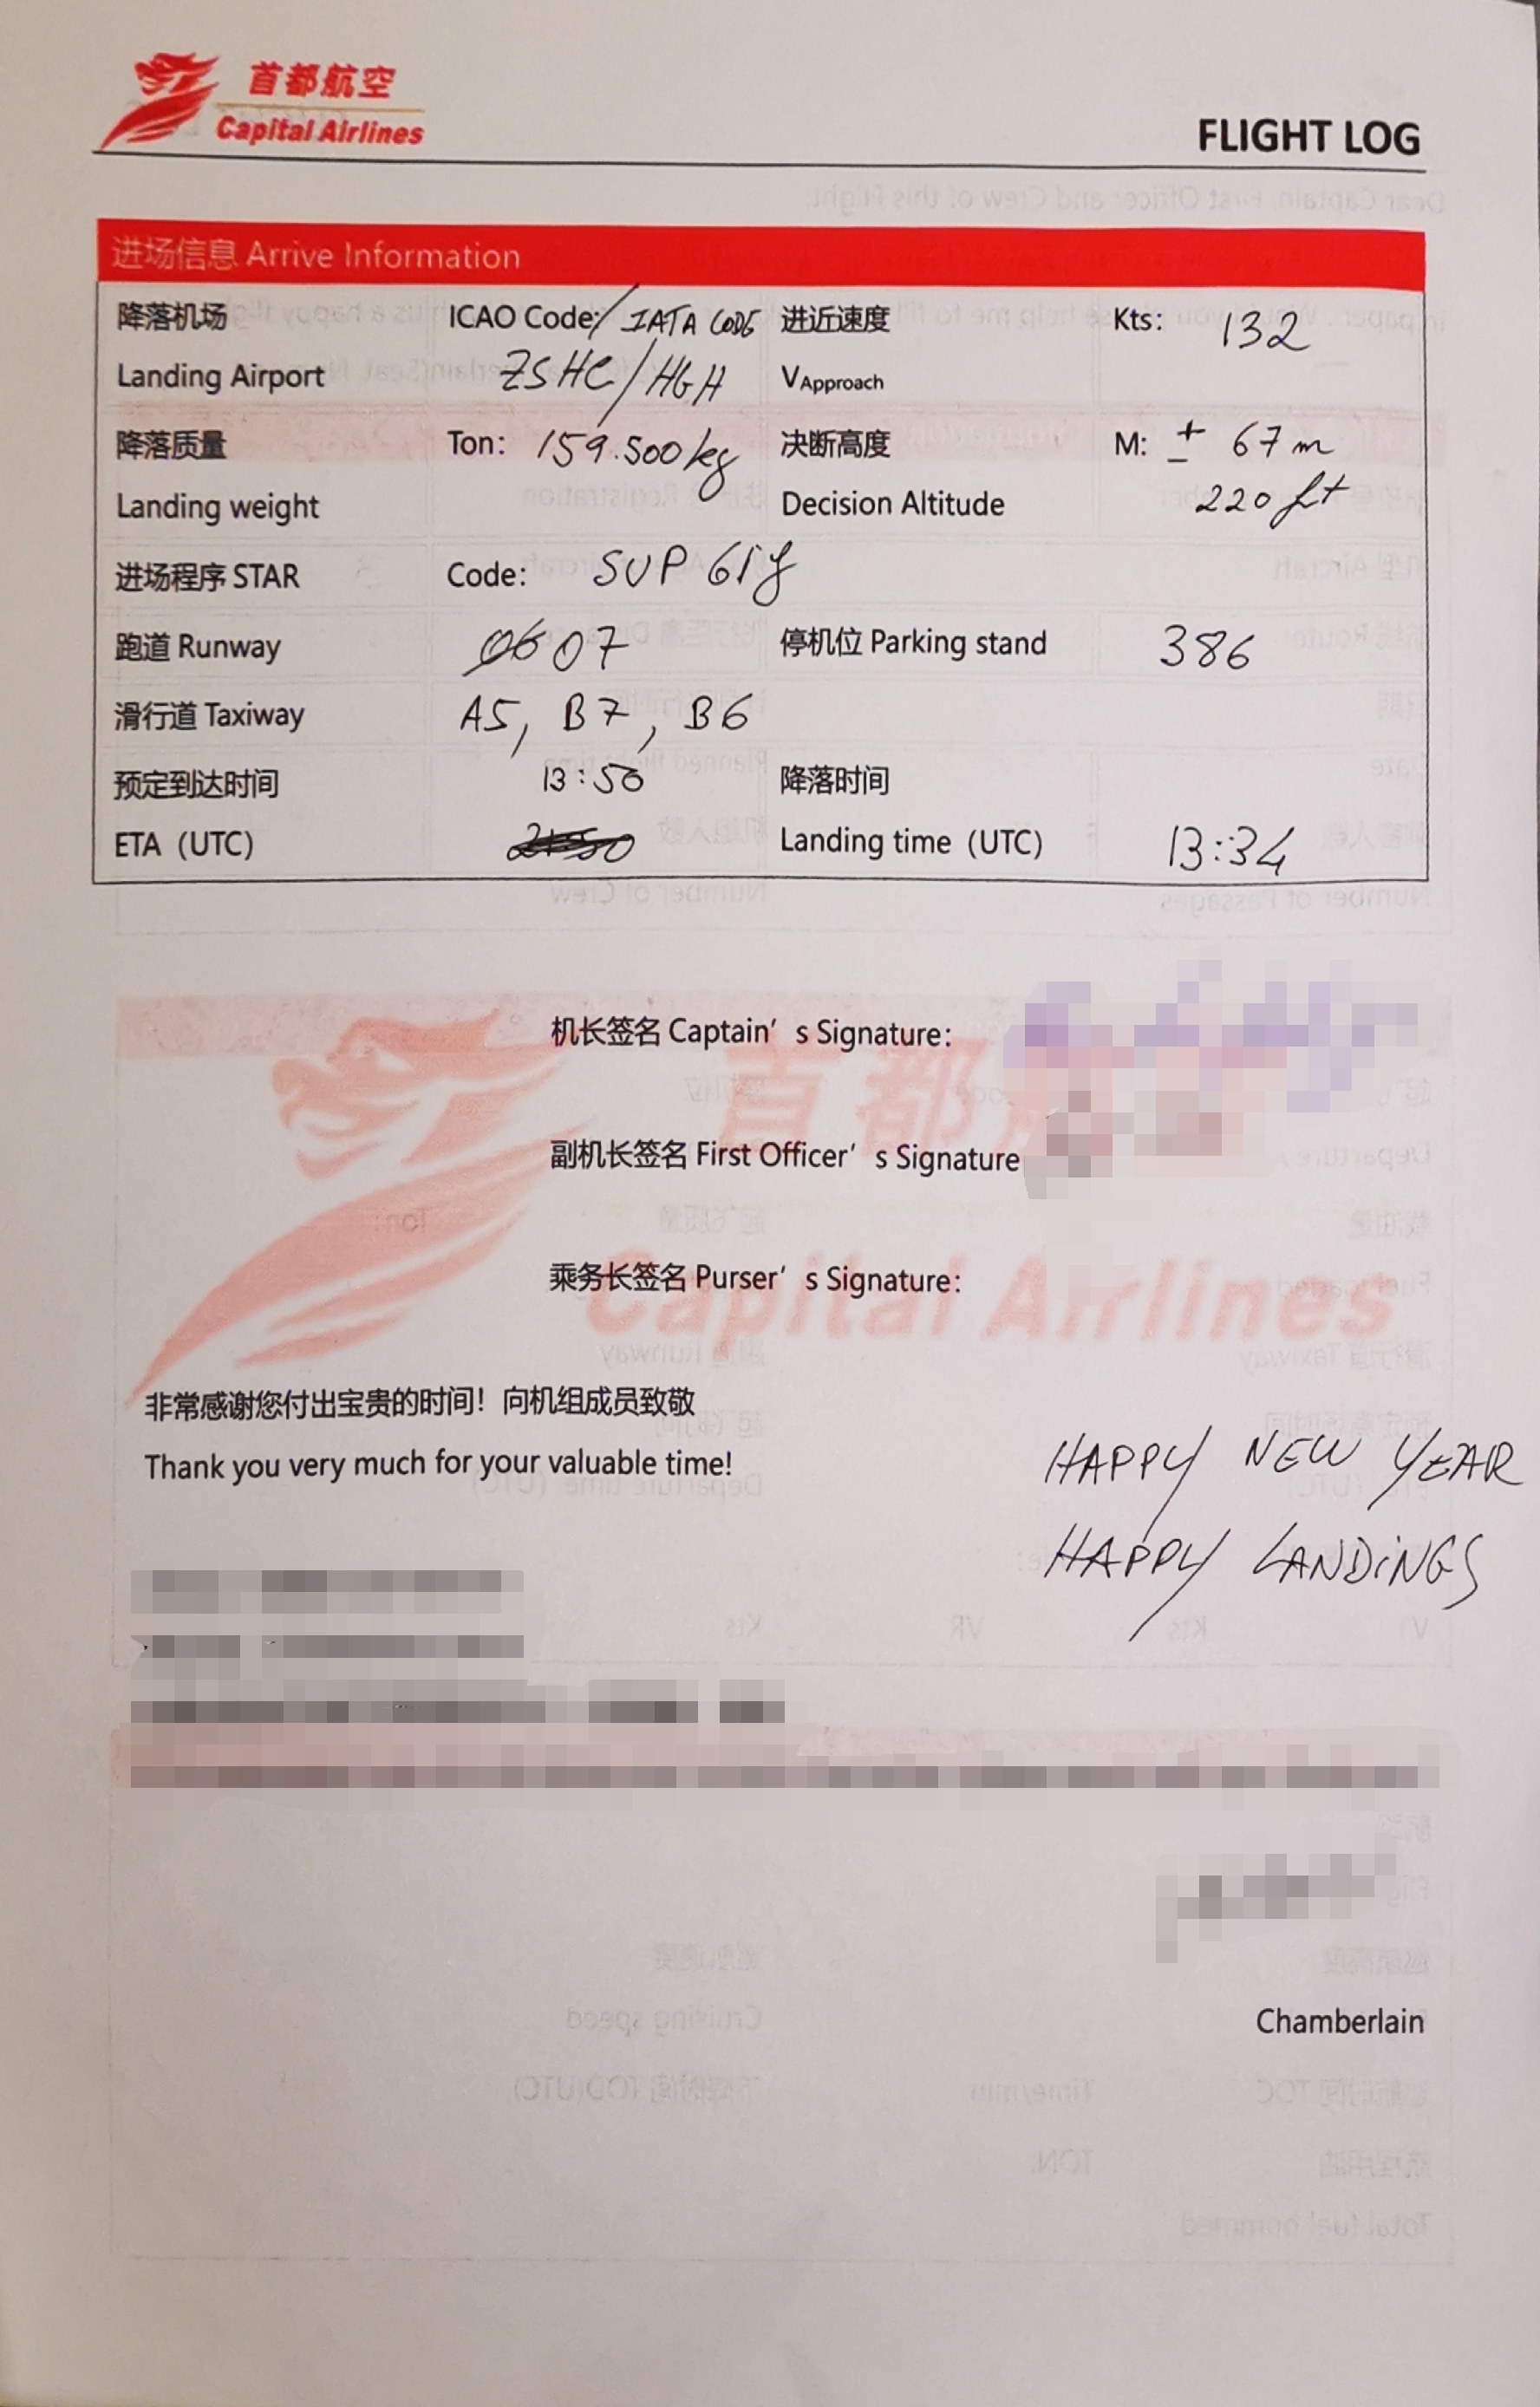 首都航空
Capital Airlines
FLIGHT LOG
进场信息 Arrive Information
降落机场 ICAO Code:/ IATA CODE 进近速度 Kts: 132
Landing Airport ZSHC/HGH VApproach
降落质量 Ton: 159.500kg 决断高度 M: ± 67m
Landing weight Decision Altitude 220ft
进场程序 STAR Code: SUP 61
跑道 Runway 06 07 停机位 Parking stand 386
滑行道 Taxiway A5, B7, B6
预定到达时间 13:50 降落时间
ETA (UTC) Landing time (UTC) 13:34
机长签名 Captain's Signature:
副机长签名 First Officer's Signature
乘务长签名 Purser's Signature:
首都
Capital Airlines
非常感谢您付出宝贵的时间! 向机组成员致敬
Thank you very much for your valuable time!
HAPPY NEW YEAR
HAPPY LANDINGS
Chamberlain